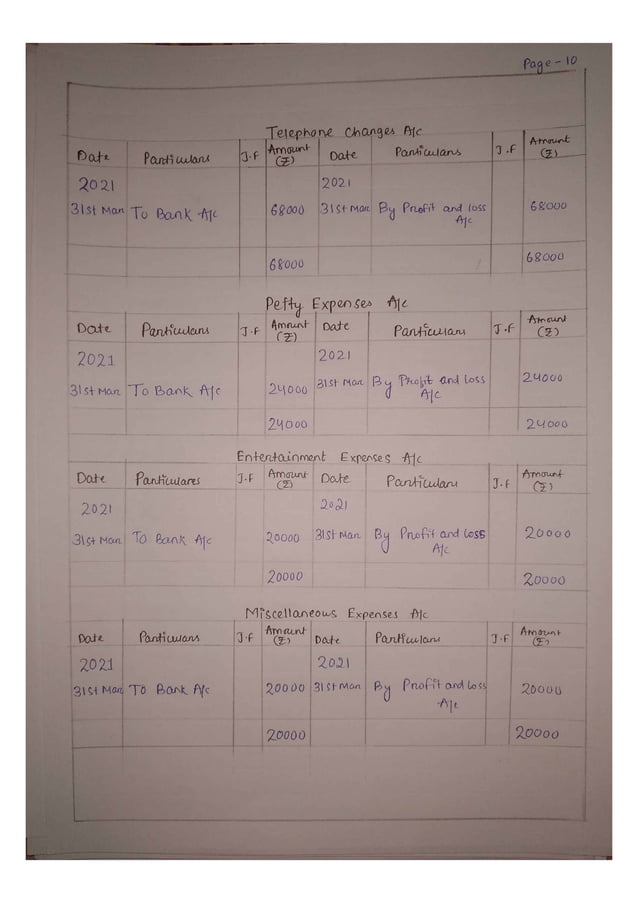 Page - 10
Telephone Changes A/c
Date Particulars J.F Amount (₹) Date Particulars J.F Amount (₹)
2021 2021
31st Mar To Bank A/c 68000 31st Mar By Profit and loss A/c 68000
68000 68000
Petty Expenses A/c
Date Particulars J.F Amount (₹) Date Particulars J.F Amount (₹)
2021 2021
31st Mar To Bank A/c 24000 31st Mar By Profit and Loss A/c 24000
24000 24000
Entertainment Expenses A/c
Date Particulares J.F Amount (₹) Date Particulars J.F Amount (₹)
2021 2021
31st Mar To Bank A/c 20000 31st Mar By Profit and Loss A/c 20000
20000 20000
Miscellaneous Expenses A/c
Date Particulars J.F Amount (₹) Date Particulars J.F Amount (₹)
2021 2021
31st Mar To Bank A/c 20000 31st Mar By Profit and Loss A/c 20000
20000 20000